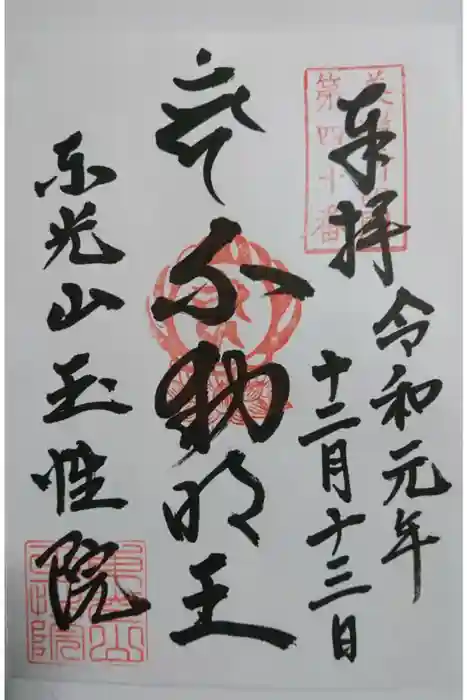 奉拝
令和元年
十二月十三日
不動明王
东光山玉性院
第四十番